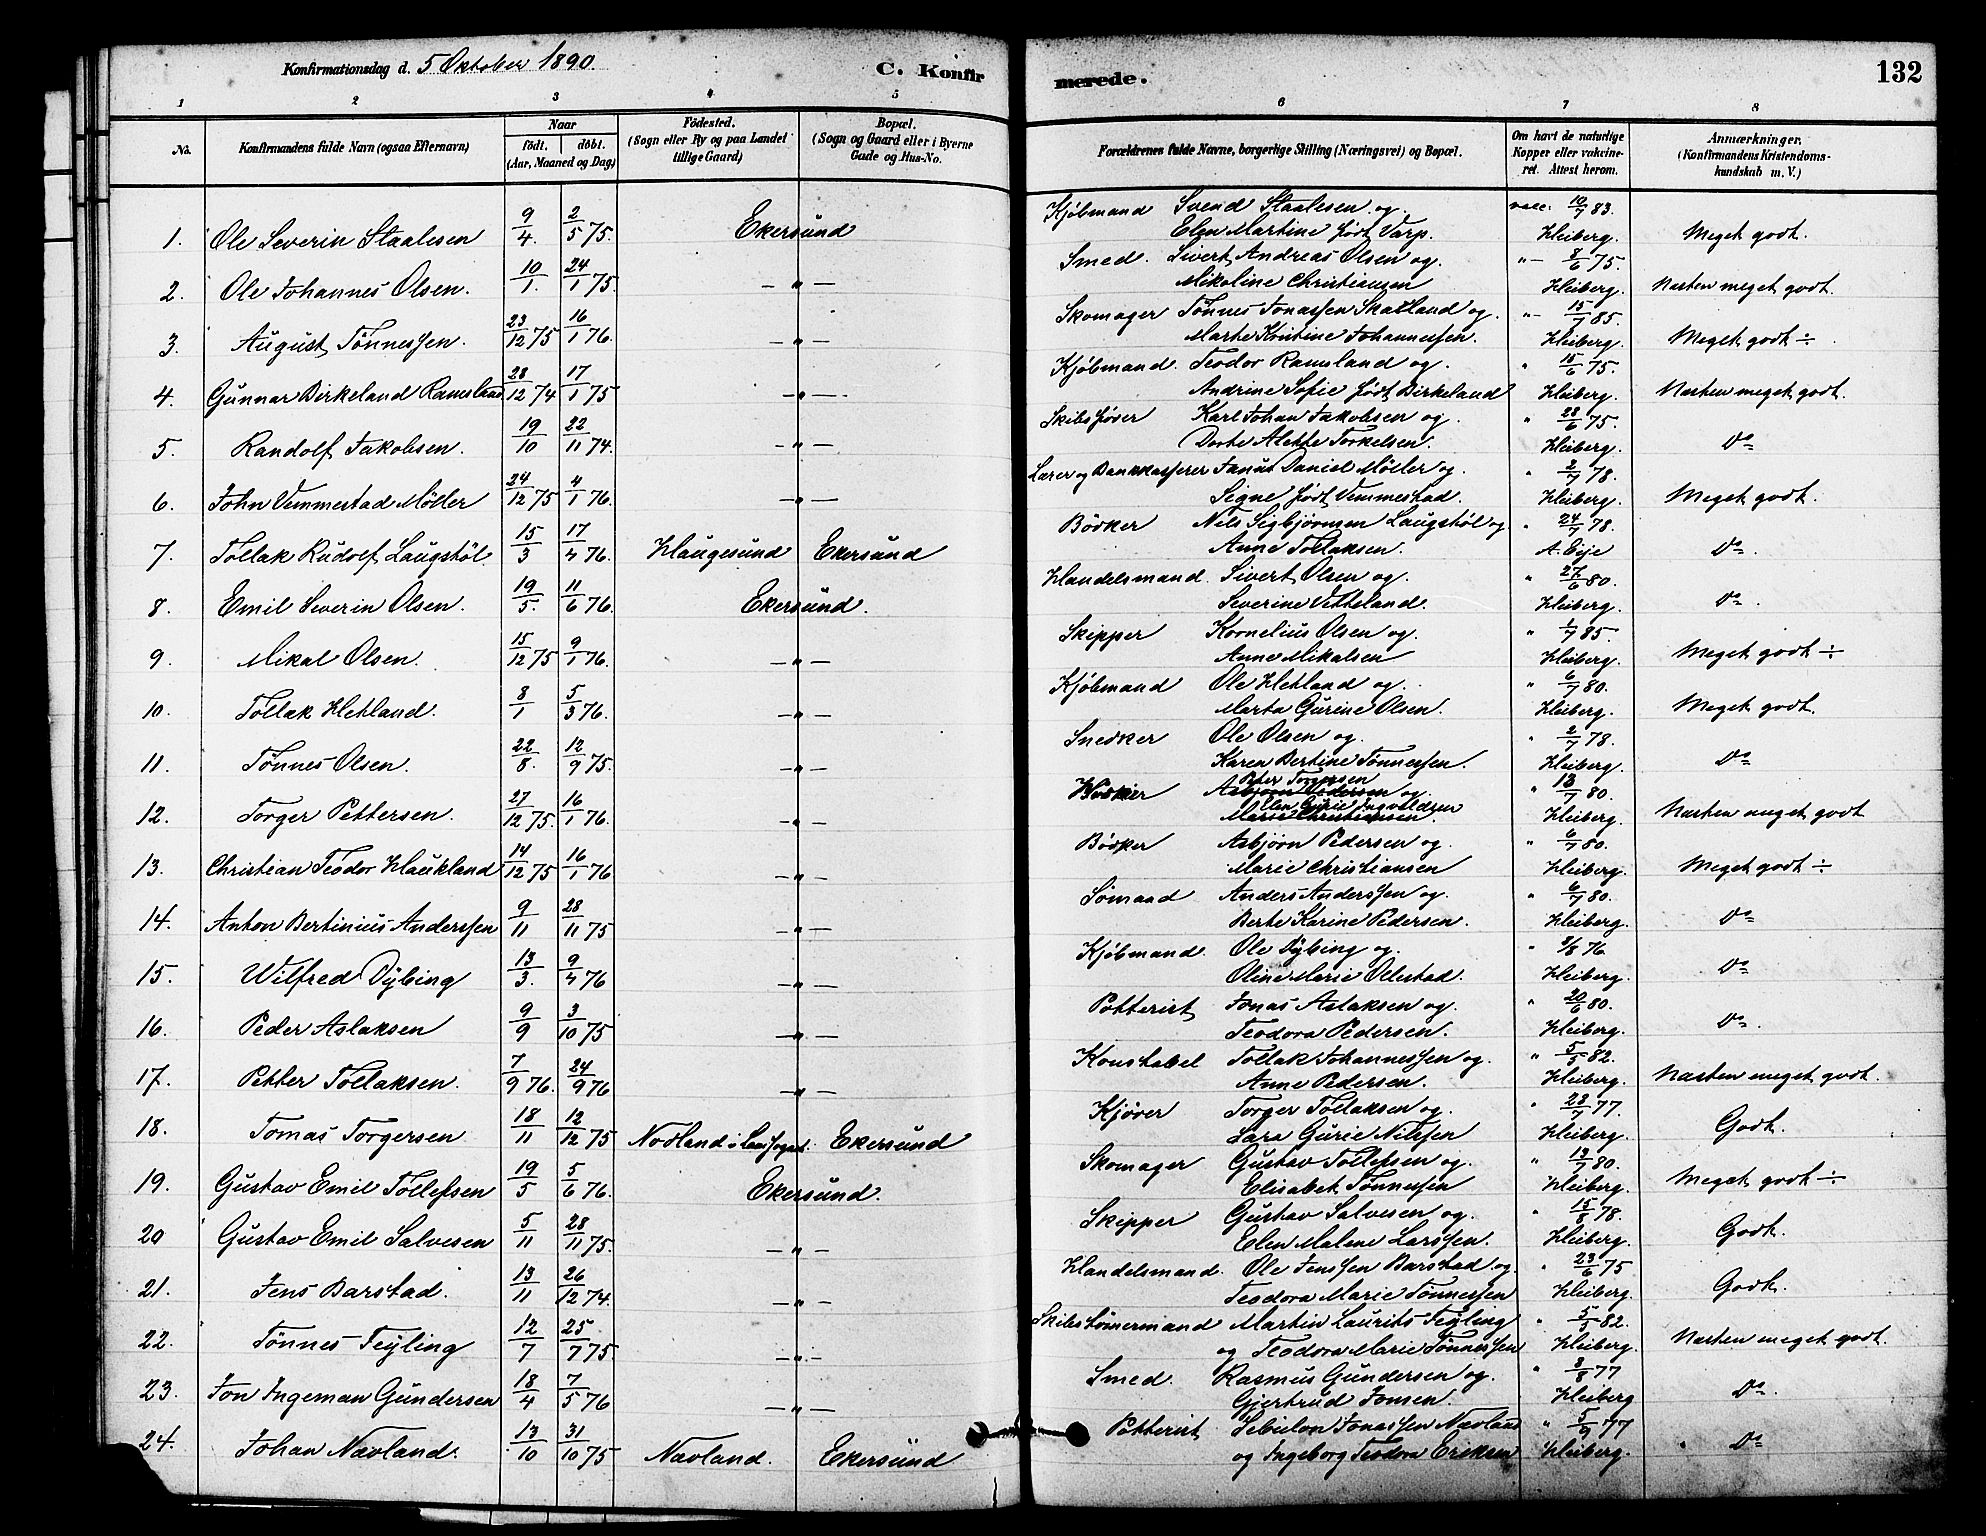 Konfirmationsdag d. 5 Oktober 1890. C. Konfir
merede. 132
1 2 3 4 5 6 7 8
No. Konfirmandens fulde Navn (ogsaa Efternavn)
Naar
födt. döbt.
(Aar, Maaned og Dag)
Födested.
(Sogn eller By og paa Landet
tillige Gaard)
Bopæl.
(Sogn og Gaard eller i Byerne
Gade og Hus-No.
Forældrenes fulde Navne, borgerlige Stilling (Næringsvei) og Bopæl.
Om havt de naturlige
Kopper eller vakcine-
ret. Attest herom.
Anmærkninger.
(Konfirmandens Kristendoms-
kundskab m. V.)
1. Ole Severin Staalesen 9/4. 2/5 75. Ekersund Kjøbmand Svend Staalesen og vacc. 10/7 83.
Elen Martine født Varp. Heiberg. Meget godt.
2. Ole Johannes Olsen. 10/1. 24/1 75. — " — Smed. Sivert Andreas Olsen og "— 8/6 75.
Mikaline Christiansen Heiberg. Næsten meget godt.
3. August Tønnessen. 23/12 75 16/1 76. — " — Skomager Tønnes Jonassen Skatland og "— 15/7 85.
Marte Kristine Johannessen. Heiberg. Meget godt ÷.
4. Gunnar Birkeland Ramsland 28/12 74 17/1 75 — " — Kjøbmand. Teodor Ramsland og " 15/6 75.
Andrine Sofie født Birkeland Heiberg. Næsten meget godt.
5. Randolf Jakobsen. 19/10 22/11 74. — " — Skibsfører Karl Johan Jakobsen og " 28/6 75.
Dorte Alette Torkelsen. Heiberg. Do
6. John Vemmestad Møller 24/12 75 4/1 76. — " — Lærer og Bankkasserer Janus Daniel Møller og " 2/7 78.
Signe født Vemmestad. Heiberg. Meget godt.
7. Tollak Rudolf Laugstøl. 15/3 17/4 76. Haugesund Ekersund Bødker Nils Sigbjørnsen Laugstøl og " 24/7 78.
Anne Tollaksen. A. Eije Do.
8. Emil Severin Olsen. 19/5. 11/6 76. Ekersund. Handelsmand. Sivert Olsen og " 27/6 80.
Severine Vetteland. Heiberg. Do.
9. Mikal Olsen. 15/12 75 9/1 76. — " — Skipper Kornelius Olsen og " 1/7 85.
Anne Mikalsen Heiberg. Meget godt ÷.
10. Tollak Hetland. 8/1 5/3 76. — " — Kjøbmand Ole Hetland og " 6/7 80.
Marta Gurine Olsen. Heiberg. Meget godt.
11. Tønnes Olsen. 22/8. 12/9 75. — " — Snedker Ole Olsen og " 2/7 78.
Karen Bertine Tønnessen. Heiberg. Do
12. Torger Pettersen. 27/12 75. 16/1 76. — " — Peter Torgersen
Asbjørn Pedersen og " 13/7 80.
Elen Gurie Ingvaldsen
Marie Christiansen. Heiberg. Næsten meget godt
13. Christian Teodor Haukland 14/12 75 16/1 76 — " — Bødker Asbjørn Pedersen og " 6/7 80.
Marie Christiansen Heiberg. Meget godt ÷
14. Anton Bertinius Anderssen 9/11 28/11 75 — " — Sømand Anders Anderssen og " 6/7 80.
Berte Karine Pedersen. Heiberg. Do
15. Wilfred Dybing 13/3. 9/4 76 — " — Kjøbmand. Ole Dybing og " 2/8 76
Oline Marie Ollestad. Heiberg. Do
16. Peder Aslaksen 9/9 3/10 75 — " — Potterist Jonas Aslaksen og " 20/6 80.
Teodora Pedersen. Heiberg. Do.
17. Petter Tollaksen. 7/9 76. 24/9 76 — " — Konstabel Tollak Johannessen og " 5/5 82.
Anne Pedersen. Heiberg. Næsten meget godt.
18. Tomas Torgersen 18/11 12/12 75 Nodland i Sogndal. Ekersund Kjører Torger Tollaksen og " 28/7 77.
Sara Gurie Nilssen Heiberg. Godt.
19. Gustav Emil Tollefsen 19/5 5/6 76. Ekersund. Skomager Gustav Tollefsen og " 13/7 80.
Elisabet Tønnessen Heiberg. Meget godt ÷
20 Gustav Emil Salvesen 5/11 28/11 75. — " — Skipper Gustav Salvesen og " 15/8 78.
Elen Malene Larssen. Heiberg. Godt.
21. Jens Barstad. 13/11 26/12 74. — " — Handelsmand. Ole Jenssen Barstad og " 23/6 75
Teodora Marie Tønnessen Heiberg. Godt.
22. Tønnes Tejling 12/7 25/7 75. — " — Skibstømermand Martin Laurits Tejling " 5/5 82.
og Teodora Marie Tønnessen Heiberg. Næsten meget godt.
23. Jon Ingeman Gundersen 18/4 7/5 76 — " — Smed. Rasmus Gundersen og " 8/8 77
Gjertrud Jonsen. Heiberg Do.
24. Johan Navland. 13/10 31/10 75 Navland. Ekersund Potterist Sebulon Jonassen Navland " 5/7 77
og Ingeborg Teodora Eriksen Heiberg. " Do